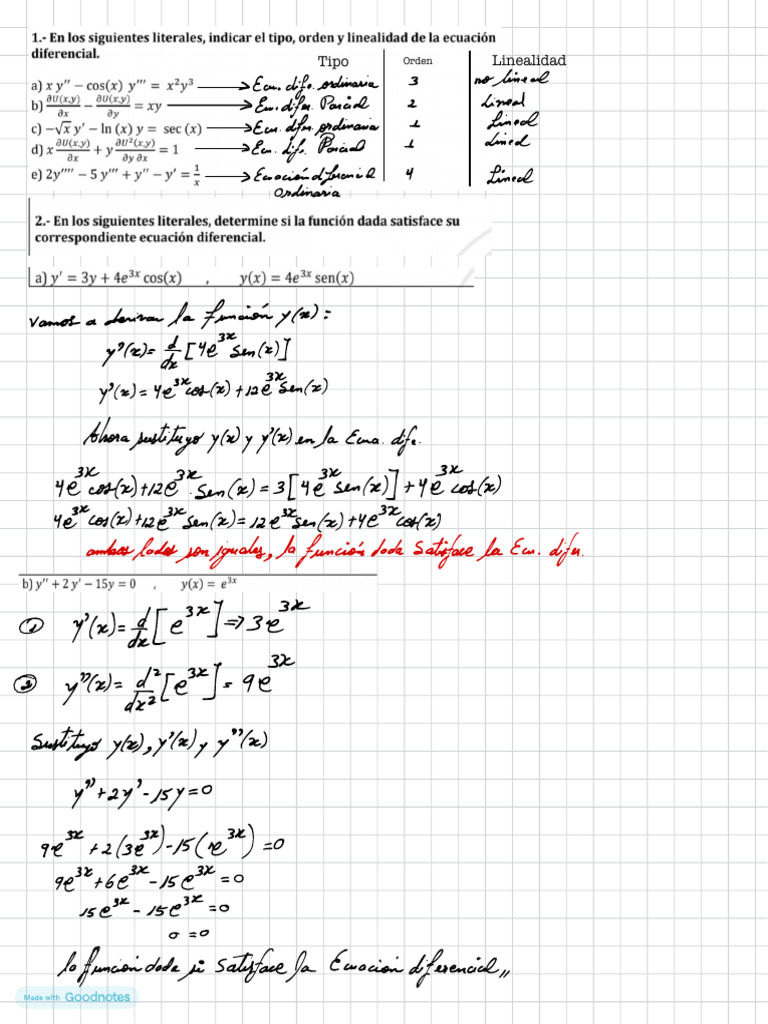 1.- En los siguientes literales, indicar el tipo, orden y linealidad de la ecuación
diferencial.
Tipo Orden Linealidad
a) x y'' − cos(x) y''' = x²y³ → Ecu. dife. ordinaria 3 no lineal
b) ∂U(x,y)/∂x − ∂U(x,y)/∂y = xy → Ecu. difer. Parcial 2 Lineal
c) −√x y' − ln (x) y = sec (x) → Ecu. difer. ordinaria 1 Lineal
d) x ∂U(x,y)/∂x + y ∂U²(x,y)/∂y ∂x = 1 → Ecu. dife. Parcial 1 Lineal
e) 2y'''' − 5 y''' + y'' − y' = 1/x → Ecuación diferencial 4 Lineal
Ordinaria
2.- En los siguientes literales, determine si la función dada satisface su
correspondiente ecuación diferencial.
a) y' = 3y + 4e³ˣ cos(x) , y(x) = 4e³ˣ sen(x)
Vamos a derivar la función y(x):
y'(x) = d/dx [4e³ˣ sen(x)]
y'(x) = 4e³ˣ cos(x) + 12e³ˣ sen(x)
Ahora sustituyo y(x) y y'(x) en la Ecua. dife.
4e³ˣ cos(x) + 12e³ˣ · sen(x) = 3[4e³ˣ sen(x)] + 4e³ˣ cos(x)
4e³ˣ cos(x) + 12e³ˣ sen(x) = 12e³ˣ sen(x) + 4e³ˣ cos(x)
ambos lados son iguales, la función dada satisface la Ecu. difer.
b) y'' + 2 y' − 15y = 0 , y(x) = e³ˣ
① y'(x) = d/dx [e³ˣ] ⇒ 3e³ˣ
② y''(x) = d²/dx² [e³ˣ] = 9e³ˣ
Sustituyo y(x), y'(x) y y''(x)
y'' + 2y' - 15y = 0
9e³ˣ + 2(3e³ˣ) - 15(e³ˣ) = 0
9e³ˣ + 6e³ˣ - 15e³ˣ = 0
15e³ˣ - 15e³ˣ = 0
0 = 0
la función dada si satisface la Ecuación diferencial,,
Made with Goodnotes